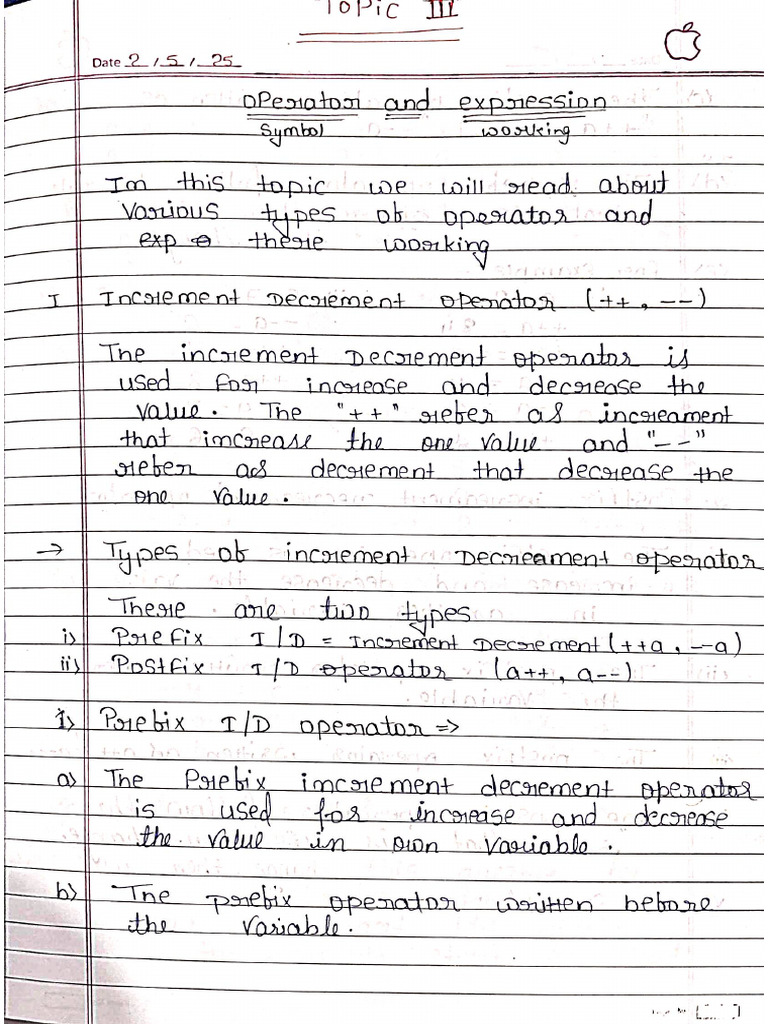 Topic III
Date 2/5/25
Operator and expression
Symbol working
In this topic we will read about
Various types of operator and
exp there working
I Increment Decrement operator (++, --)
The increment Decrement operator is
used for increase and decrease the
value. The "++" refer as increament
that increase the one value and "--"
refer as decrement that decrease the
one value.
→ Types of increment Decreament operator
There are two types
i> Prefix I/D = Increment Decrement (++a, --a)
ii> Postfix I/D operator (a++, a--)
1> Prefix I/D operator =>
a> The Prefix increment decrement operator
is used for increase and decrease
the value in own variable.
b> The prefix operator written before
the variable.